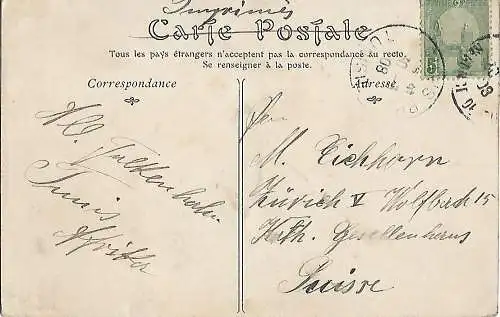 Imprimés
Carte Postale
Tous les pays étrangers n'acceptent pas la correspondance au recto.
Se renseigner à la poste.
Correspondance
Adresse
5
Tunis
Afrika
Herrn
M. Eichhorn
Zürich V Wolfbach 15
Kath. Gesellenhaus
Suisse